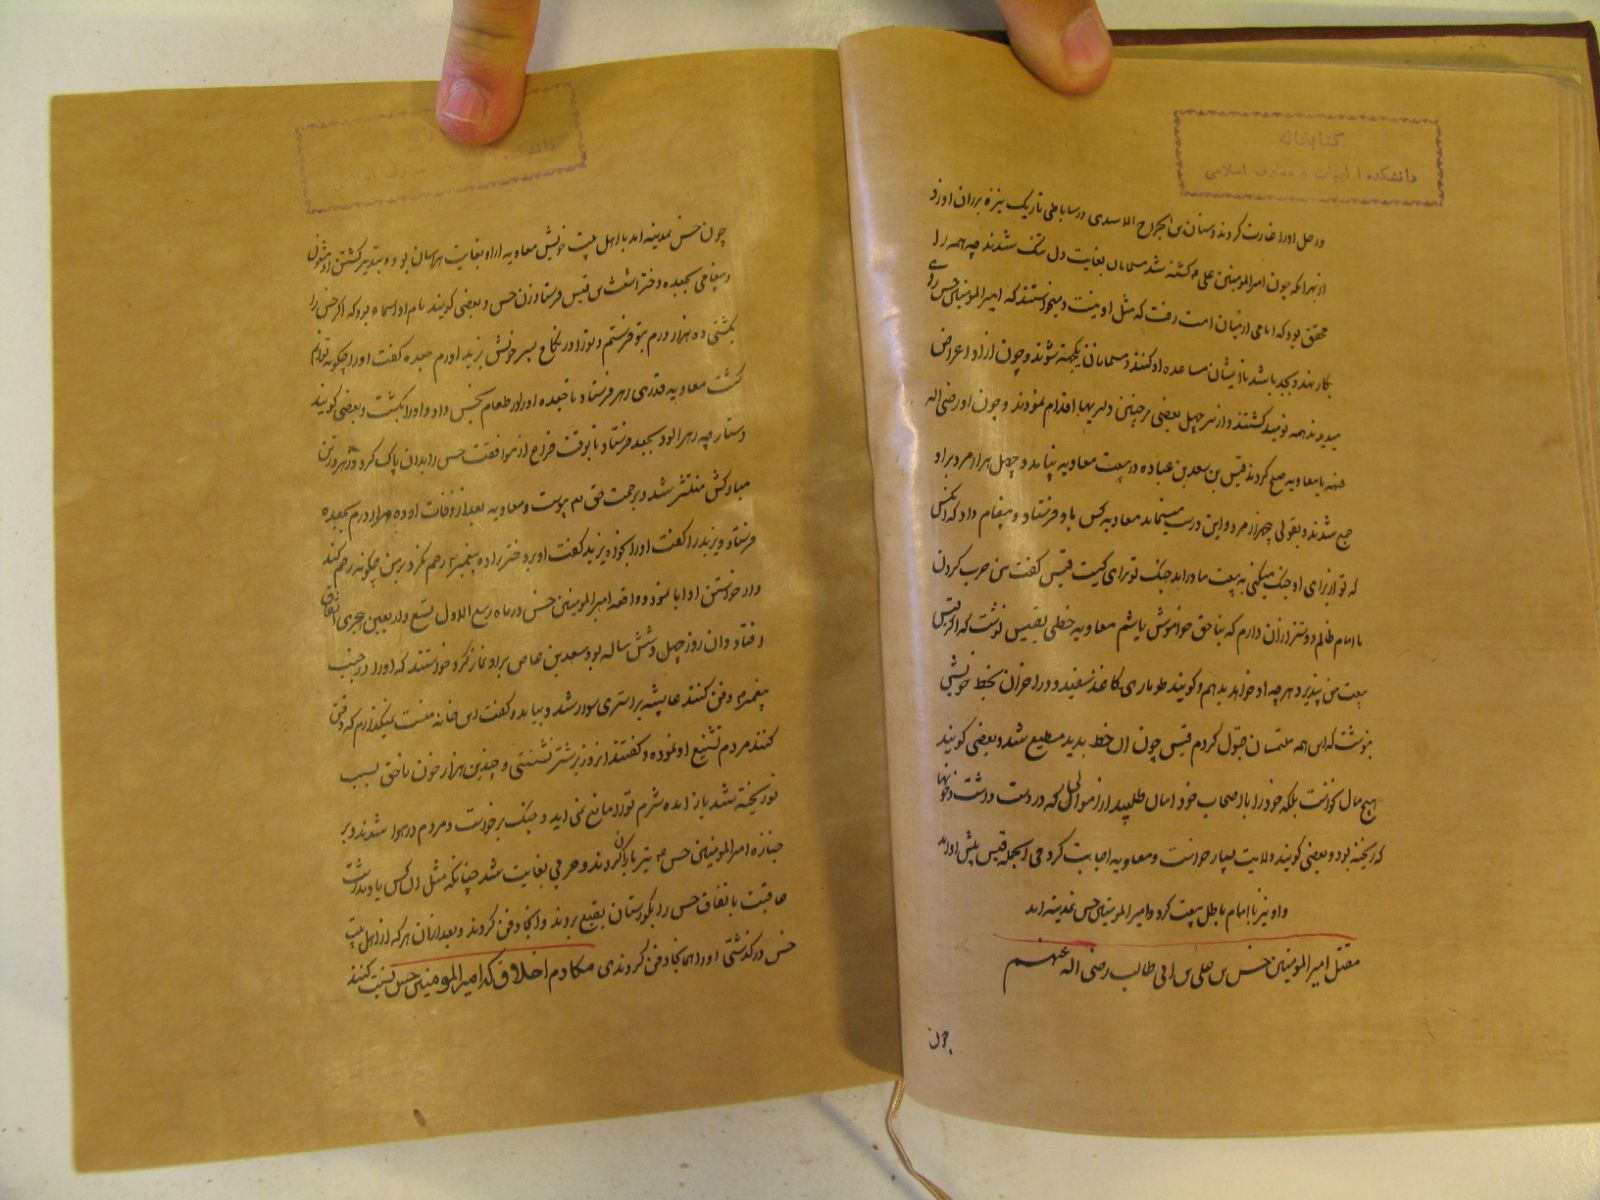 کتابخانه
دانشکده الهیات و معارف اسلامی
ورحل اورا غارت کردند وسنان بن الجراح الاسدی در ساباطی تاریک نیزه بر ران او زد
او بهرانکه چون امیرالمومنین علی کشته شد مسلمانان بغایت دل تنک شدند چه همه را
محقق بود که امامی از میان امت رفت که مثل او نیست ومیخواستند که امیرالمومنین حسن رای
بکار نهد وبجد باشد تا ایشان مساعده او کنند ومسلمانان یکجهته شوند وچون از او اعراض
میدیدند همه نومید کشتند واز سر جهل بعضی بر چنین دلیریها اقدام نمودند وچون او رضی الله
عنه با معاویه صلح کردند قیس بن سعد بن عباده در بیعت معاویه نیامد وچهل هزار مرد بر او
جمع شدند وبقولی چهار هزار مرد واین درست مینماید معاویه کس باو فرستاد وپیغام داد که انکس
که تو از برای او جنک میکنی به بیعت ما درامد جنک تو برای کیست قیس کفت من حرب کردن
با امام ظالم دوستتر از ان دارم که بناحق خواموش باشم معاویه خطی بقیس نوشت که اکر قیس
بیعت من پذیرد هرچه او خواهد بدهم وکویند طوماری کاغذ سفید ودر اخر ان بخط خویش
بنوشت که این همه ملتمسات قبول کردم قیس چون ان خط بدید مطیع شد وبعضی کویند
هیچ مال نخواست بلکه خود را با اصحاب خود امان طلبید از اموالی که در دست داشت وخونها
که ریخته بود وبعضی کویند ولایت بسیار خواست ومعاویه اجابت کرد فی الجمله قیس پیش او امد
واو نیز با امام باطل بیعت کرد وامیرالمومنین حسن بمدینه امد
مقتل امیرالمومنین حسن بن علی بن ابی طالب رضی الله عنهم
چون
دانشکده الهیات و معارف اسلامی
چون حسن بمدینه امد با اهل بیت خویش معاویه از او بغایت هراسان بود وبتدبیر کشتن او مشغول
وپیغامی بجعده دختر اشعث بن قیس فرستاد زن حسن وبعضی کویند نام او اسماء بود که اکر حسن را
بکشتی ده هزار درم بتو فرستم وتو را در نکاح پسر خویش یزید اورم جعده کفت او را چکونه توانم
کشت معاویه قدری زهر فرستاد تا جعده او را در طعام بحسن داد واو را بکشت وبعضی کویند
دستارچه زهرالود بجعده فرستاد تا بوقت فراغ از موافقت حسن را بدان پاک کرد وزهر در تن
مبارکش منتشر شد وبرحمت حق پیوست ومعاویه بعد از وفات او ده هزار درم بجعده
فرستاد ویزید را کفت او را بخواه یزید کفت او بر دختر زاده پیغمبر رحم نکرد بر من چکونه رحم کند
واز خواستن او ابا نمود وواقعه امیرالمومنین حسن در ماه ربیع الاول تسع واربعین هجری اتفاق
افتاد وان روز چهل وشش ساله بود سعد بن عاص بر او نماز کرد خواستند که او را در جنب
پیغمبر دفن کنند عایشه بر استری سوار شد وبیامد وکفت این خانه منست نمیکذارم که دفن
کنند مردم تشنیع او نموده وکفتند انروز بر شتر نشستی وچندین هزار خون ناحق بسبب
تو ریخته شد باز امده شرم تو را مانع نمی اید وجنک برخواست ومردم در هوا شدند وبر
جنازه امیرالمومنین حسن تیر باران کردند وحربی بغایت شد چنانکه مثل ان کس یاد نداشت
عاقبت باتفاق حسن را بکورستان بقیع بردند وانجا دفن کردند وبعد از ان هرکه از اهل بیت
حسن درکذشتی او را همانجا دفن کردندی مکارم اخلاق که امیرالمومنین حسن نسبت کنند